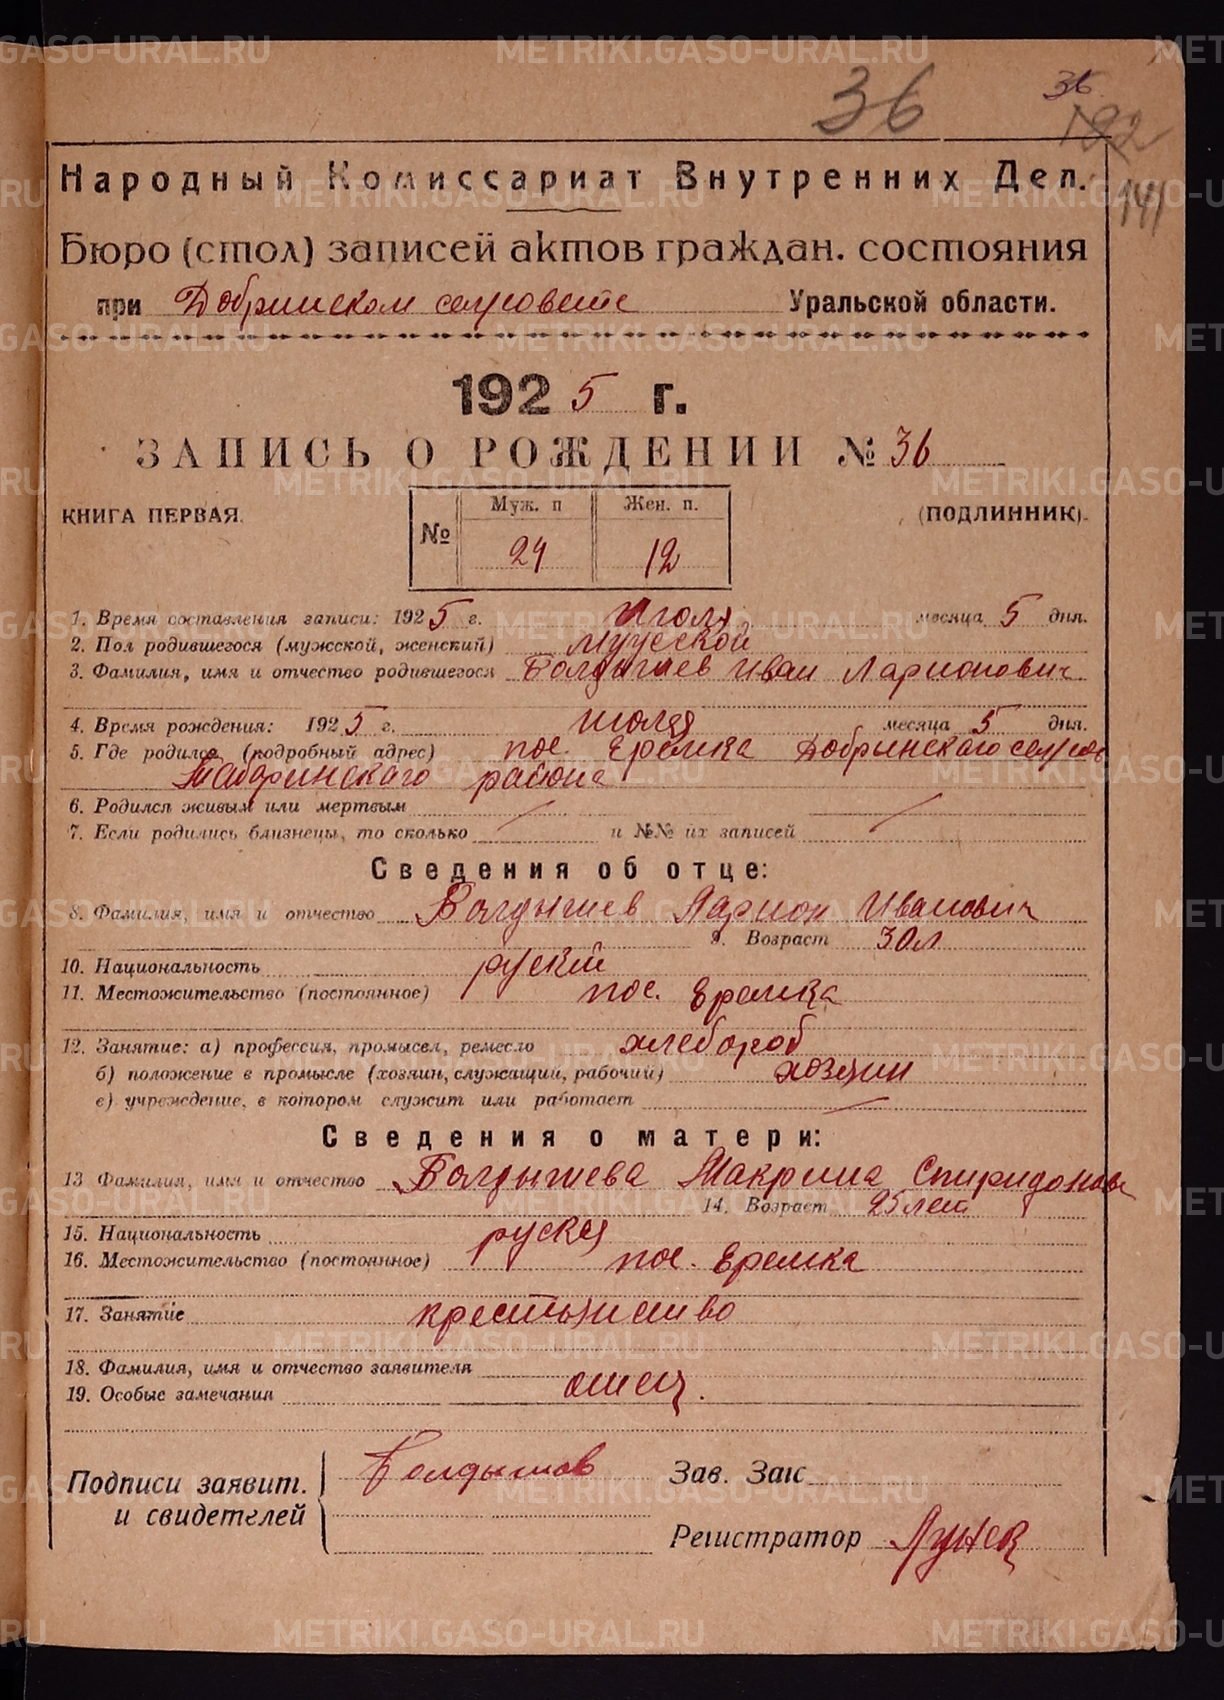 36
36
192
141
Народный Комиссариат Внутренних Дел.
Бюро (стол) записей актов граждан. состояния
при Добринском сельсовете Уральской области.
1925 г.
ЗАПИСЬ О РОЖДЕНИИ № 36
КНИГА ПЕРВАЯ. (ПОДЛИННИК).
№ Муж. п Жен. п.
24 12
1. Время составления записи: 1925 г. Июля месяца 5 дня.
2. Пол родившегося (мужской, женский) мужской
3. Фамилия, имя и отчество родившегося Болдышев Иван Ларионович
4. Время рождения: 1925 г. июля месяца 5 дня.
5. Где родился (подробный адрес) пос. Еремка Добринскаго сельсов
Табаринскаго района
6. Родился живым или мертвым
7. Если родились близнецы, то сколько и №№ их записей
Сведения об отце:
8. Фамилия, имя и отчество Болдышев Ларион Иванович
9. Возраст 30 л
10. Национальность руский
11. Местожительство (постоянное) пос. Еремка
12. Занятие: а) профессия, промысел, ремесло хлебороб
б) положение в промысле (хозяин, служащий, рабочий) хозяин
в) учреждение, в котором служит или работает
Сведения о матери:
13 Фамилия, имя и отчество Болдышева Макрина Спиридоновн
14. Возраст 25 лет
15. Национальность руская
16. Местожительство (постоянное) пос. Еремка
17. Занятие крестьянство
18. Фамилия, имя и отчество заявителя
19. Особые замечания отец.
Подписи заявит. Болдышов Зав. Загс
и свидетелей
Регистратор
METRIKI.GASO-URAL.RU